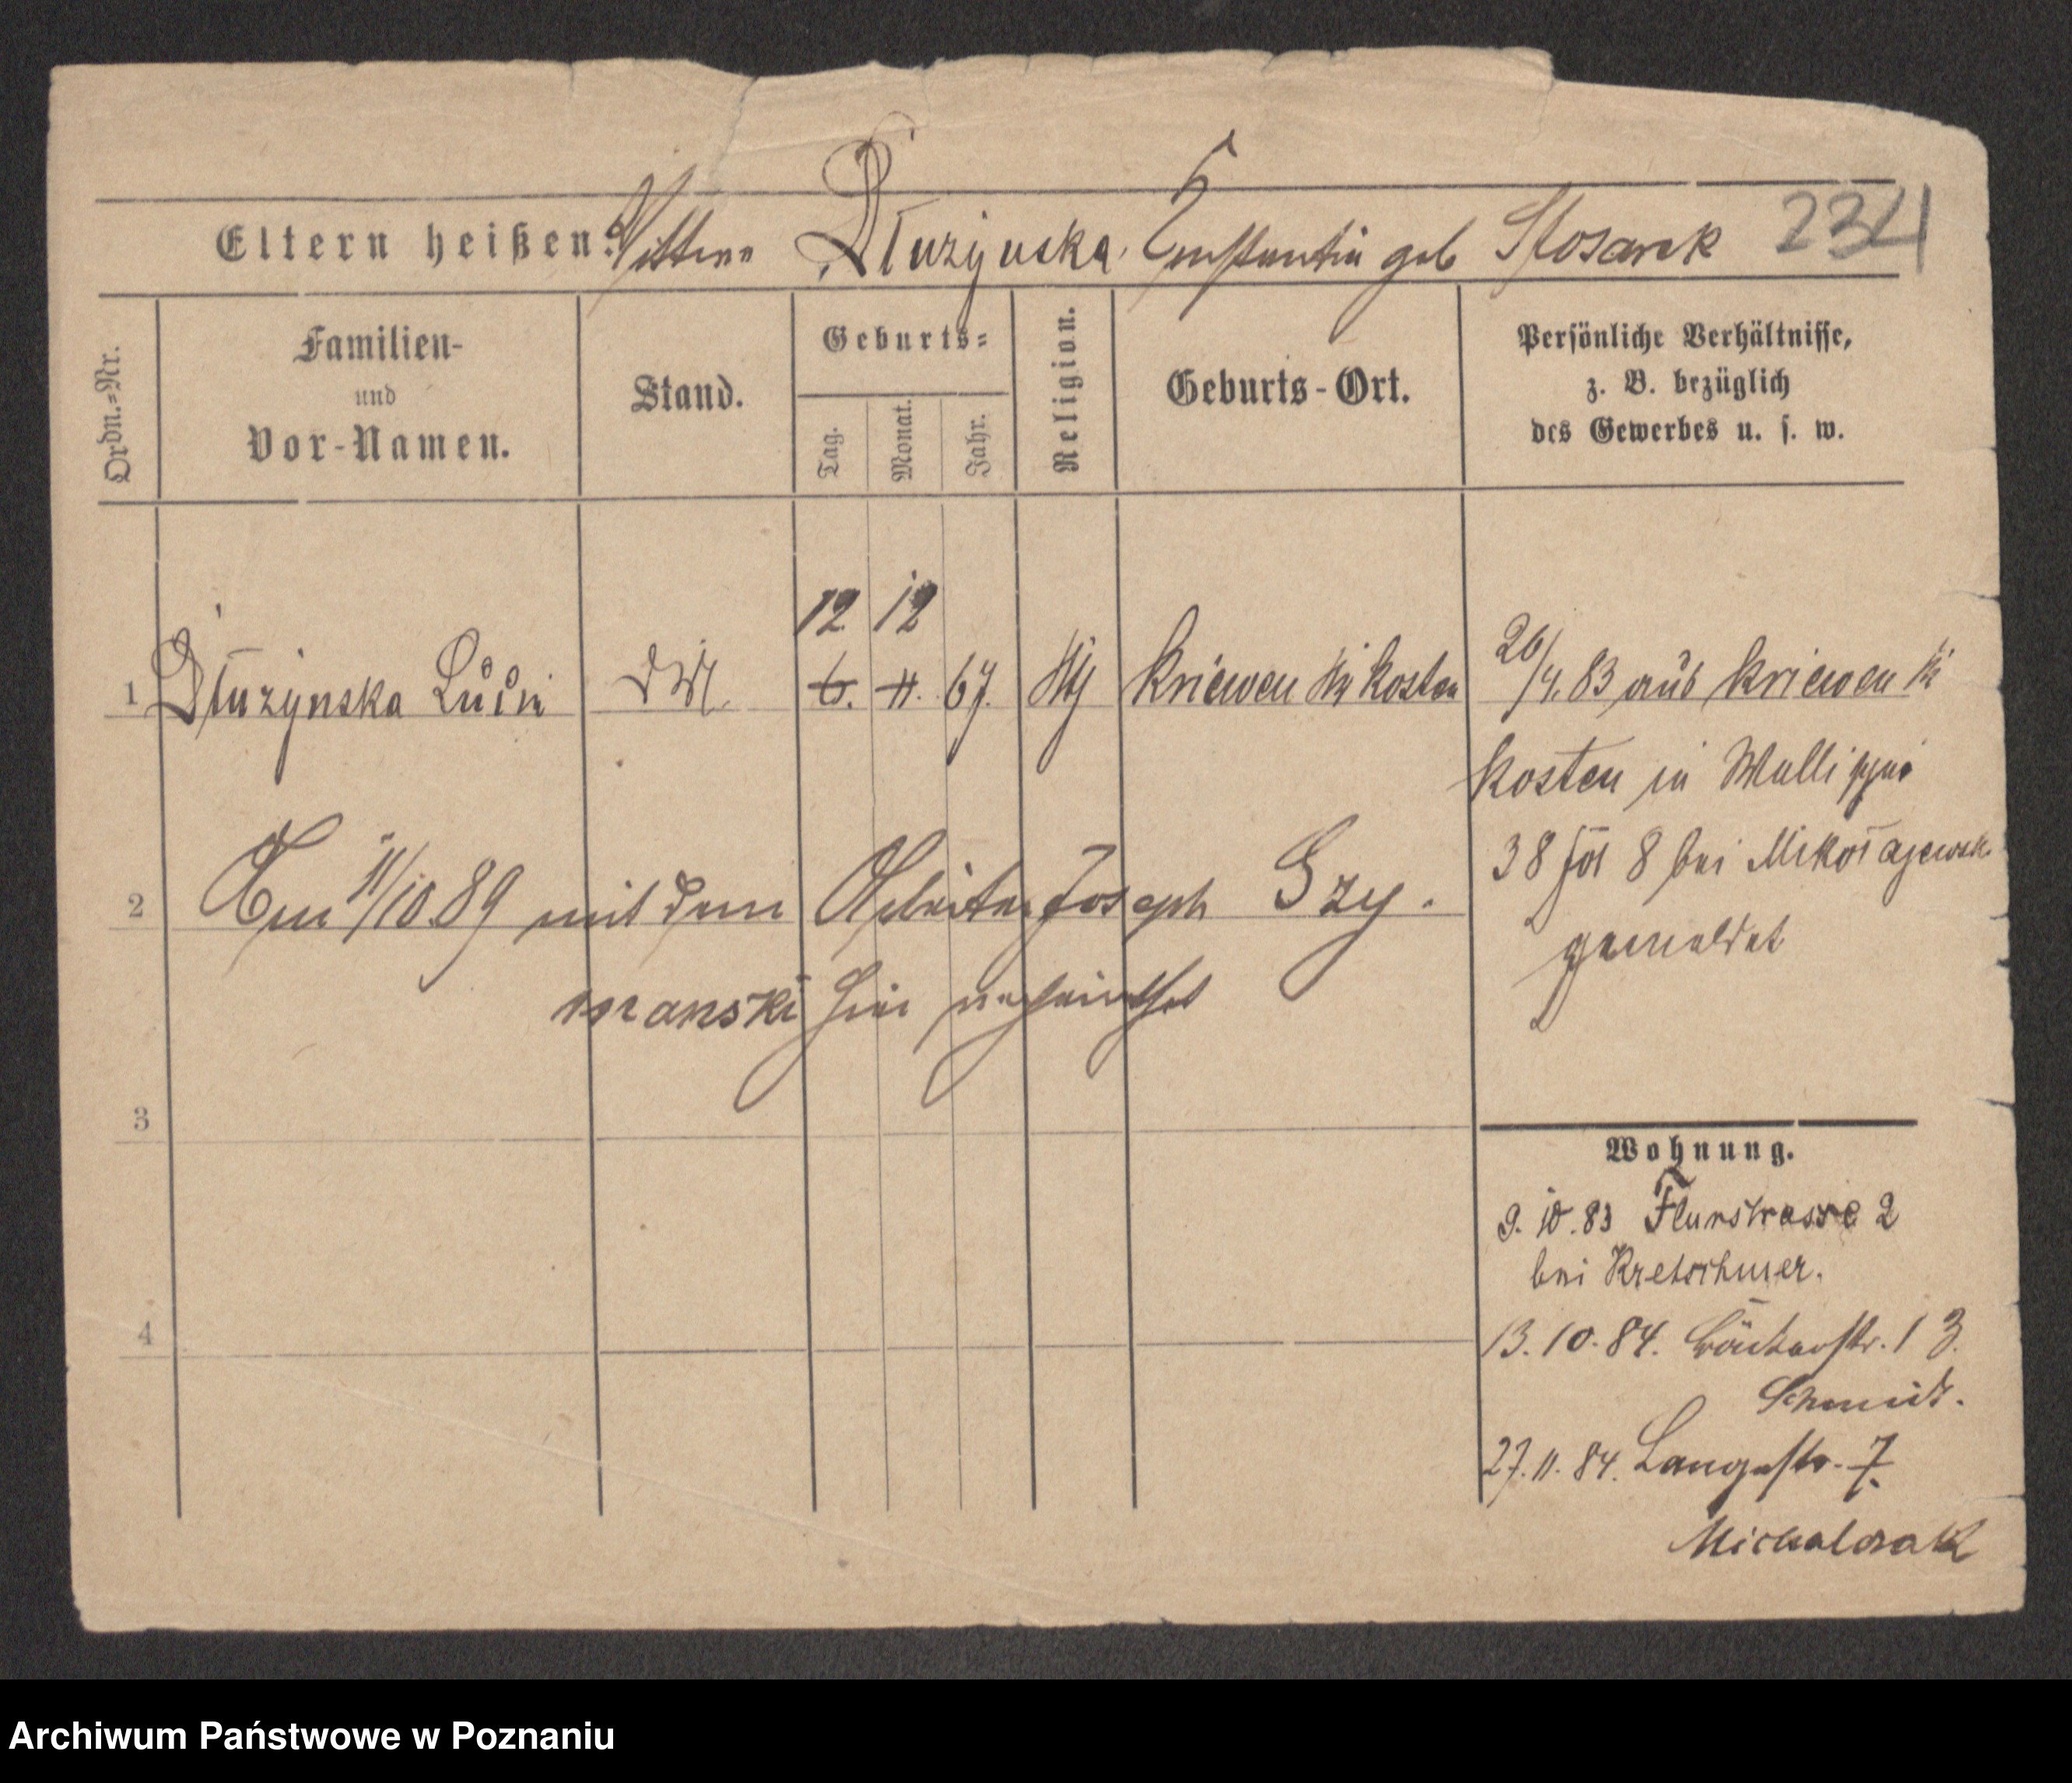 234
Eltern heißen: Dłużynska, Constantia geb Slosarek
Ordn.=Nr.
Familien-
und
Vor-Namen.
Stand.
Geburts=
Tag.
Monat.
Jahr.
Religion.
Geburts-Ort.
Persönliche Verhältnisse,
z. B. bezüglich
des Gewerbes u. s. w.
12 12
1 Dłużynska 6. 11. 67. Kriewen Kr Kosten
26/4.83 aus Kriewen Kr
Kosten in
38 8 bei Mikołajewsk
gemeldet
2 Am 11/10.89 mit dem Arbeiter Joseph Szy-
manski hier verheirathet
3
4
Wohnung.
9. 10. 83 Flurstrasse 2
bei Kretschmer.
13. 10. 84. Bäckerstr. 13.
Schmidt.
27. 11. 84. Langestr. 7.
Michalczak
Archiwum Państwowe w Poznaniu